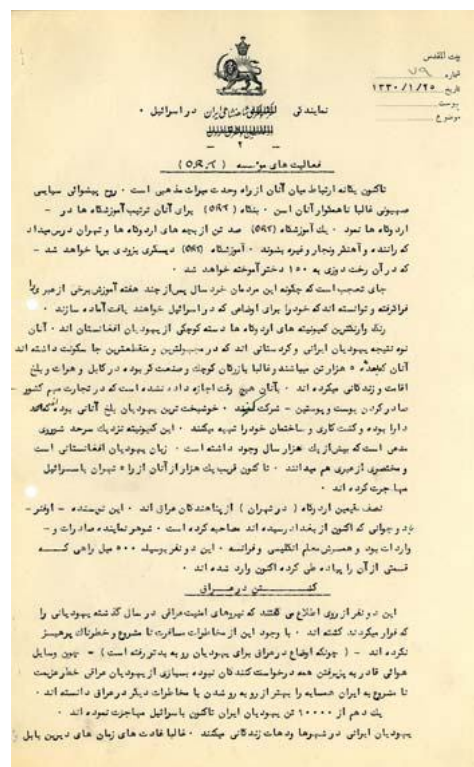 بیت المقدس
شماره ۷۹
تاریخ ۱۳۳۰/۱/۲۵
پیوست
موضوع
نمایندگی شاهنشاهی ایران در اسرائیل ۰
- ۲ -
فعالیت های موسسه (ORT)
تاکنون یگانه ارتباط میان آنان از راه وحدت میراث مذهبی است ۰ روح پیشوائی سیاسی
صهیونی غالبا ناهموار آنان اسن ۰ بنگاه (ORT) برای آنان ترتیب آموزشگاه ها در -
اردوگاه ها نمود ۰ یک آموزشگاه (ORT) صد تن از بچه های اردوگاه ها و تهران درس میداد
که راننده و آهنگر ونجار وغیره بشوند ۰ آموزشگاه (ORT) دیگری بزودی برپا خواهد شد -
که در آن رخت دوزی به ۱۵۰ دختر آموخته خواهد شد ۰
جای تعجب است که چگونه این مردمان خرد سال پس از چند هفته آموزش برخی از عبری را
فراگرفته و توانسته اند که خود را برای اوضاعی که در اسرائیل خواهند یافت آماده سازند ۰
رنگ وارنگترین کمیونیته های اردوگاه ها دسته کوچکی از یهودیان افغانستان اند ۰ آنان
نوه نتیجه یهودیان ایرانی و کردستانی اند که در مجهولترین و منقطعترین جا سکونت داشته اند
آنان ۵ هزار تن میباشند و غالبا بازرگان کوچک و صنعت گر بوده در کابل و هرات و بلخ
اقامت و زندگانی میکرده اند ۰ بآنان هیچ وقت اجازه داده نشده است که در تجارت مهم کشور -
صادر کردن پوست وپوستین - شرکت کنند ۰ خوشبخت ترین یهودیان بلخ آنانی بوده که
دارا بوده و کشت کاری و ساختمان خود را تهیه میکنند ۰ این کمیونیته نزدیک سرحد شوروی
مدعی است که بیش از یک هزار سال وجود داشته است ۰ زبان یهودیان افغانستانی است
و مختصری از عبری هم میدانند ۰ تا کنون قریب یک هزار از آنان از راه تهران باسرائیل
مهاجرت کرده اند ۰
نصف مقیمین اردوگاه (در تهران) از پناهندگان عراقی اند ۰ این نویسنده - اوفتر -
بزد و جوانی که اکنون از بغداد رسیده اند مصاحبه کرده است ۰ شوهر نماینده صادرات و -
واردات بود و همسرش معلم انگلیسی و فرانسه ۰ این دو نفر بوسیله ۵۰۰ میل راهی کسه
قسمتی از آن را پیاده طی کرده اکنون وارد شده اند ۰
کشتن در عراق
این دو نفر از روی اطلاع می گفتند که نیروهای امنیت عراقی در سال گذشته یهودیانی را
که فرار میکردند کشته اند ۰ با وجود این از مخاطرات مسافرت نا مشروع و خطرناک پرهیز
نکرده اند - (چونکه اوضاع در عراق برای یهودیان رو به بدتر رفته است) - چون وسایل
هوائی قادر به پزیرفتن همه درخواست کنندگان نبوده بسیاری از یهودیان عراقی خطر عزیمت
نا مشروع به ایران همسایه را بهتر از رو به رو شدن با مخاطرات دیگر در عراق دانسته اند ۰
یک دهم از ۱۰۰۰۰۰ تن یهودیان ایران تاکنون باسرائیل مهاجرت نموده اند ۰
یهودیان ایرانی در شهرها ودهات زندگانی میکنند ۰ غالبا عادت های زمان های دیرین بابل